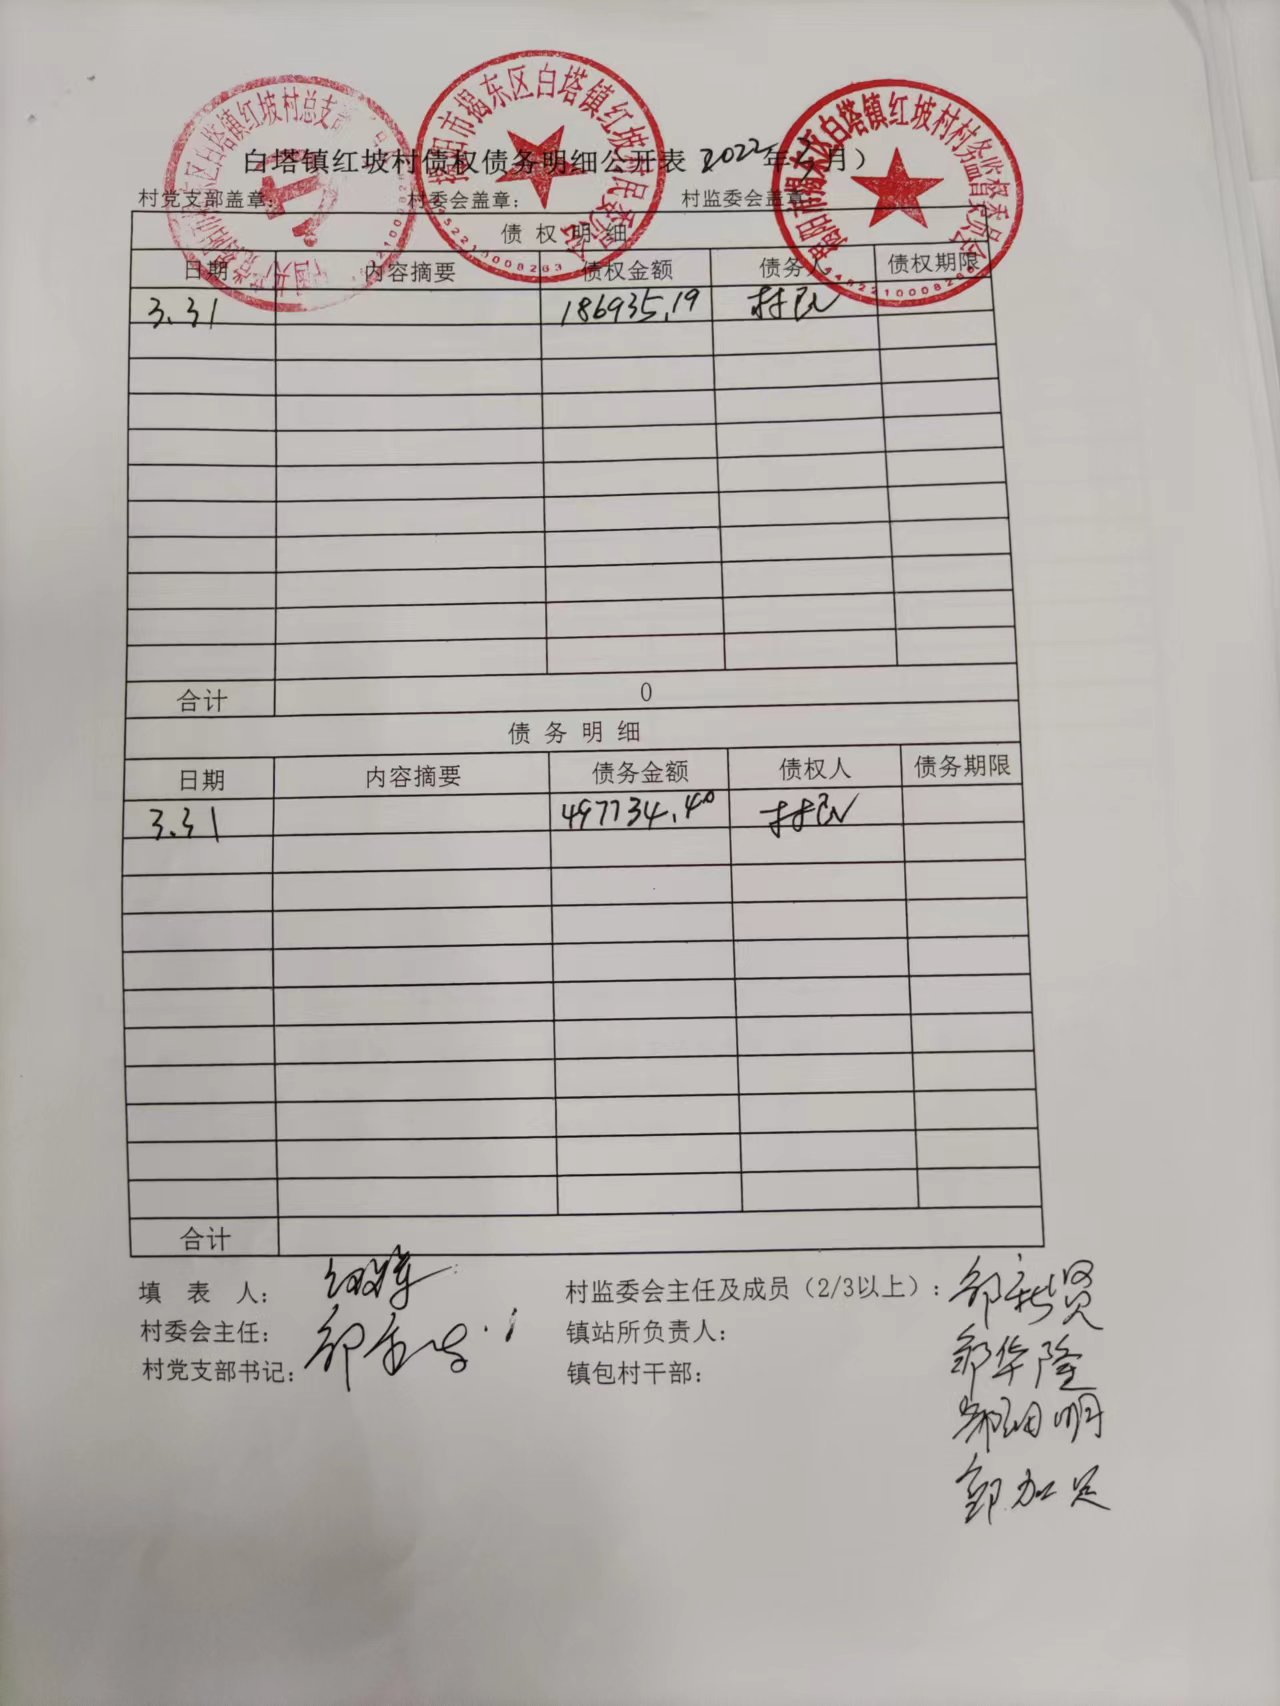 白塔镇红坡村债权债务明细公开表 2022年3月）
村党支部盖章： 村委会盖章： 村监委会盖章
揭阳市揭东区白塔镇红坡村村民委员会
揭阳市揭东区白塔镇红坡村村务监督委员会
债 权 明 细
日期 内容摘要 债权金额 债务人 债权期限
3.31 186935.19 村民
合计 0
债 务 明 细
日期 内容摘要 债务金额 债权人 债务期限
3.31 497734.40 村民
合计
填 表 人： 村监委会主任及成员（2/3以上）：
村委会主任： 镇站所负责人：
村党支部书记： 镇包村干部：
邹华隆